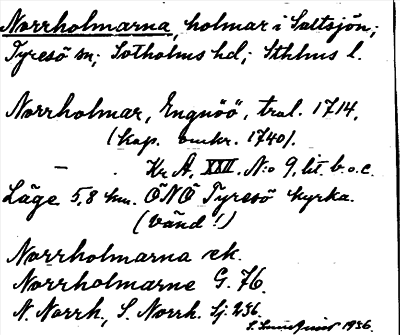 Norrholmarna, holmar i Saltsjön;
Tyresö sn; Sotholms hd; Sthlms l.
Norrholmar, Engnöö, tral. 1714,
(kop. omkr. 1740).
— . Kr A, XXII. N:o 9, lit b. o. c.
Läge 5,8 km. ÖNÖ Tyresö kyrka.
(vänd!)
Norrholmarna ek.
Norrholmarne G. 76.
N. Norrh., S. Norrh. Sj. 236.
1936.